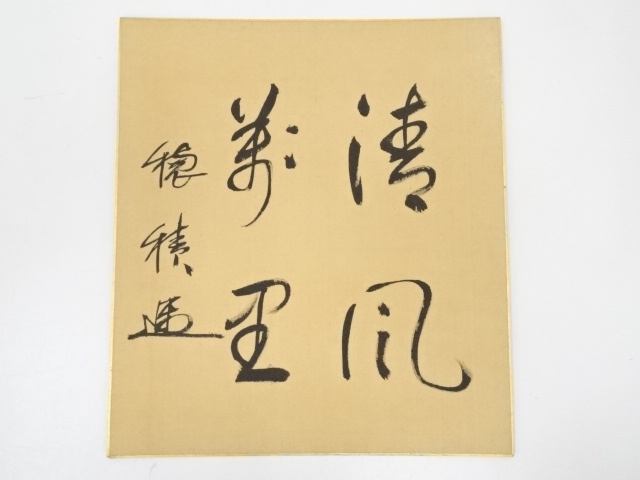 清風
萬里
穂積